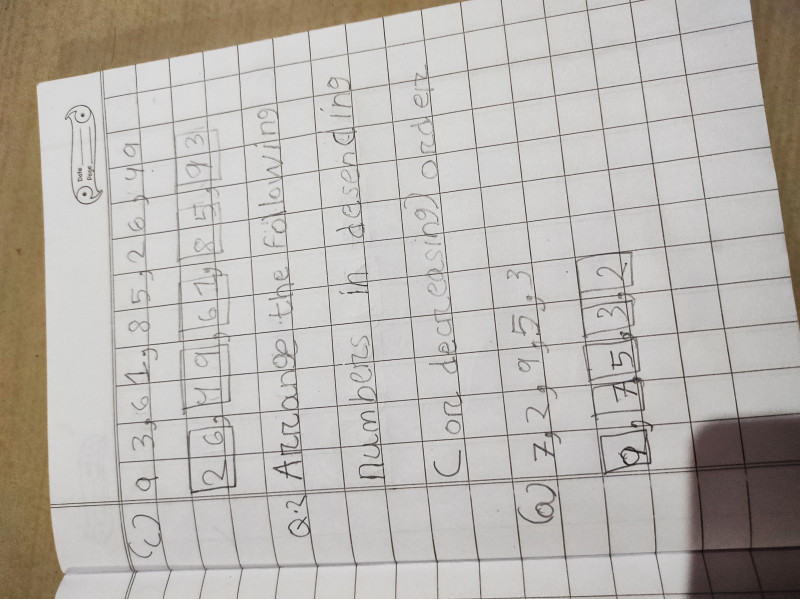 Date
Page
(c) 93,61,85,26,49
26,49,61,85,93
Q.2 Arrange the following
numbers in desending
(or decreasing) order
(a) 7,2,9,5,3
9,7,5,3,2